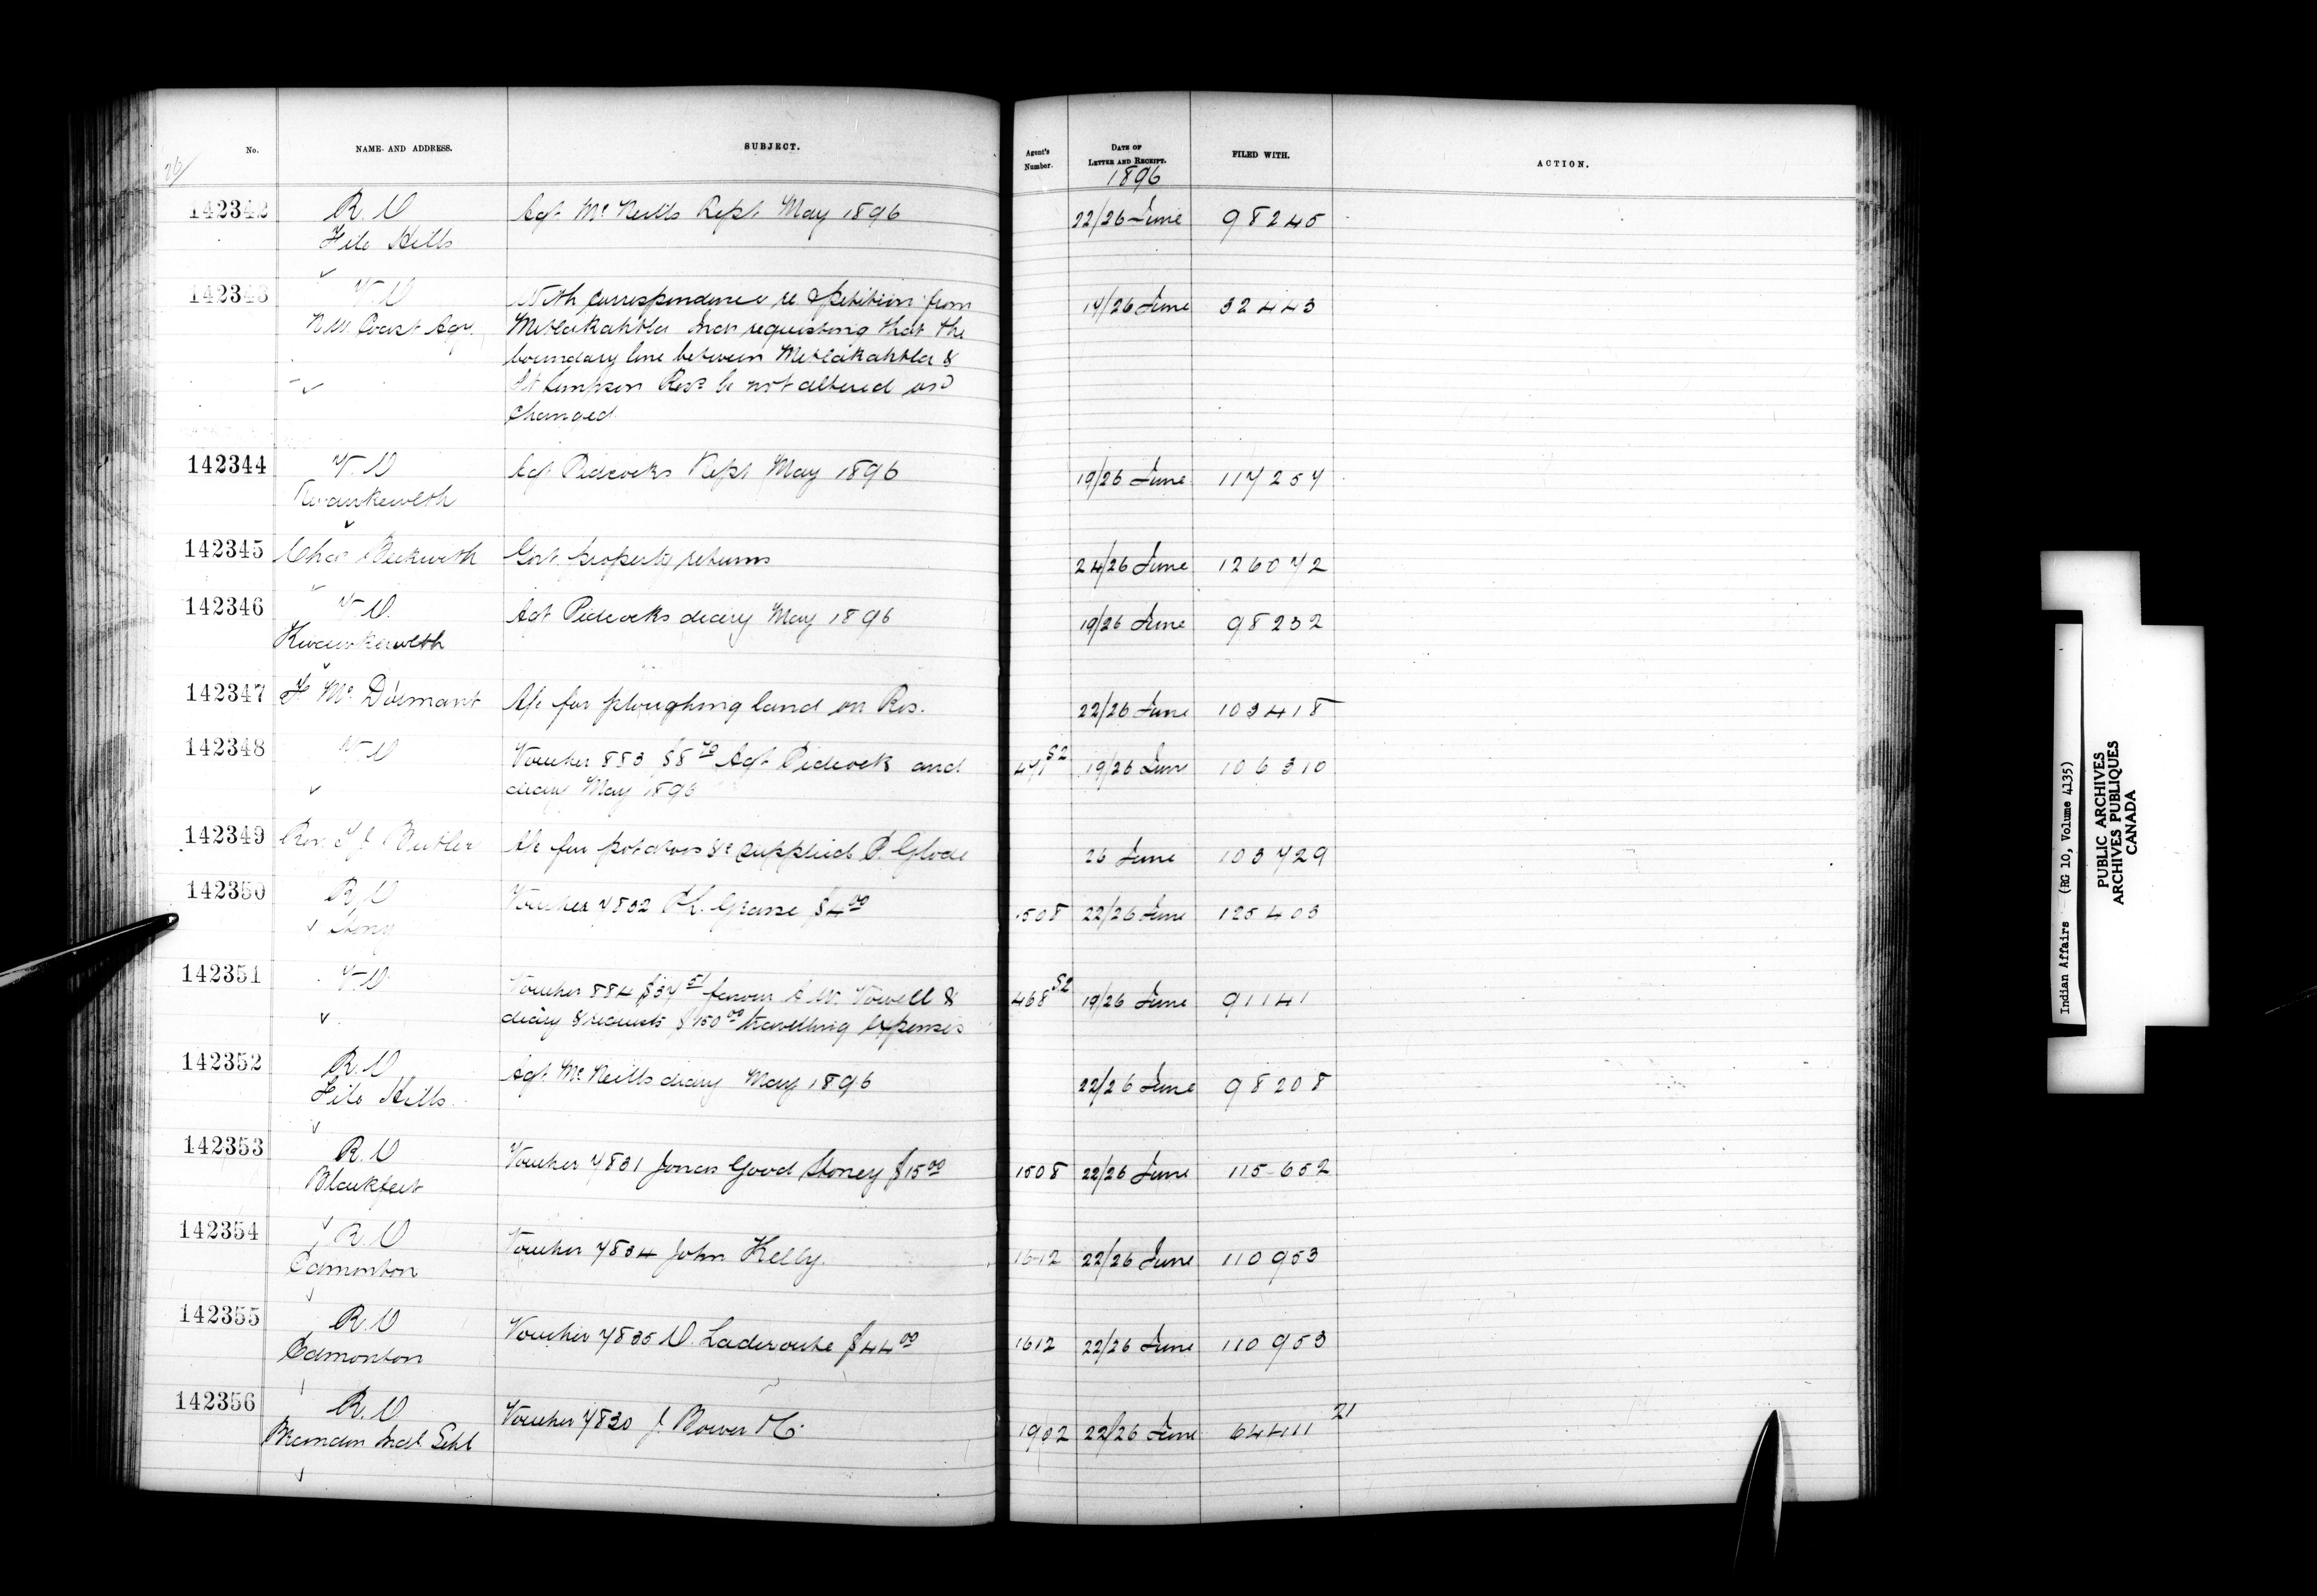 No. NAME AND ADDRESS. SUBJECT. Agent's Number. DATE OF LETTER AND RECEIPT. FILED WITH. ACTION.
26/ 1896
142342 R.D Agt. Mc Neills Rept. May 1896 22/26 June 98245
File Hills
142343 V.D With correspondence re petition from 14/26 June 32443
N W Coast Agy. Metlakahtla Inds requesting that the
boundary line between Metlakahtla &
Ft Simpson Ress be not altered or
changed
142344 V.D Agt Pidcocks Rept May 1896 19/26 June 117257
Kwawkewlth
142345 Chas Beckwith Govt property returns 24/26 June 126072
142346 V.D. Agt Pidcocks diary May 1896 19/26 June 98232
Kwawkewlth
142347 F Mc Dormant A/c for ploughing land on Res. 22/26 June 103418
142348 V.D Voucher 883 $8 70 Agt Pidcock and 471 S2 19/26 June 106310
diary May 1896
142349 Rev. T J Butler A/c for potatoes &c supplied P. Glode 26 June 103729
142350 R.D Voucher 7832 Ph. Grasse $4 00 1508 22/26 June 125403
Stony
142351 V.D. Voucher 884 $37 51 favour A W. Vowell & 468 S2 19/26 June 91141
diary & requests $750 00 travelling expenses
142352 R.D Agt. Mc Neills diary May 1896 22/26 June 98208
File Hills.
142353 R.D Voucher 7831 Jonas Good Stoney $15 00 1508 22/26 June 115652
Blackfeet
142354 R.D Voucher 7834 John Kelly. 1612 22/26 June 110953
Edmonton
142355 R.D Voucher 7835 D. Laderoute $44 00 1612 22/26 June 110953
Edmonton
142356 R.D Voucher 7830 J. Bower 1902 22/26 June 64411 21
Brandon Indl Schl
Indian Affairs (RG 10, Volume 4135)
PUBLIC ARCHIVES
ARCHIVES PUBLIQUES
CANADA